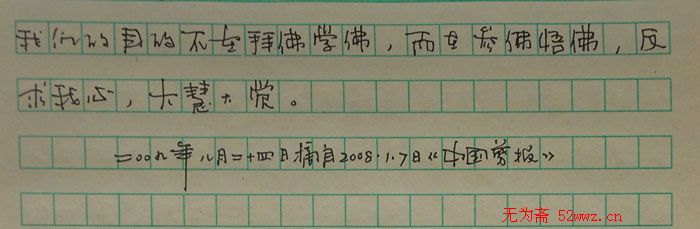 我们的目的不在拜佛学佛，而在参佛悟佛，反
求我心，大慧大觉。
二〇〇九年八月二十四日摘自2008.1.7日《中国剪报》
无为斋 52wwz.cn